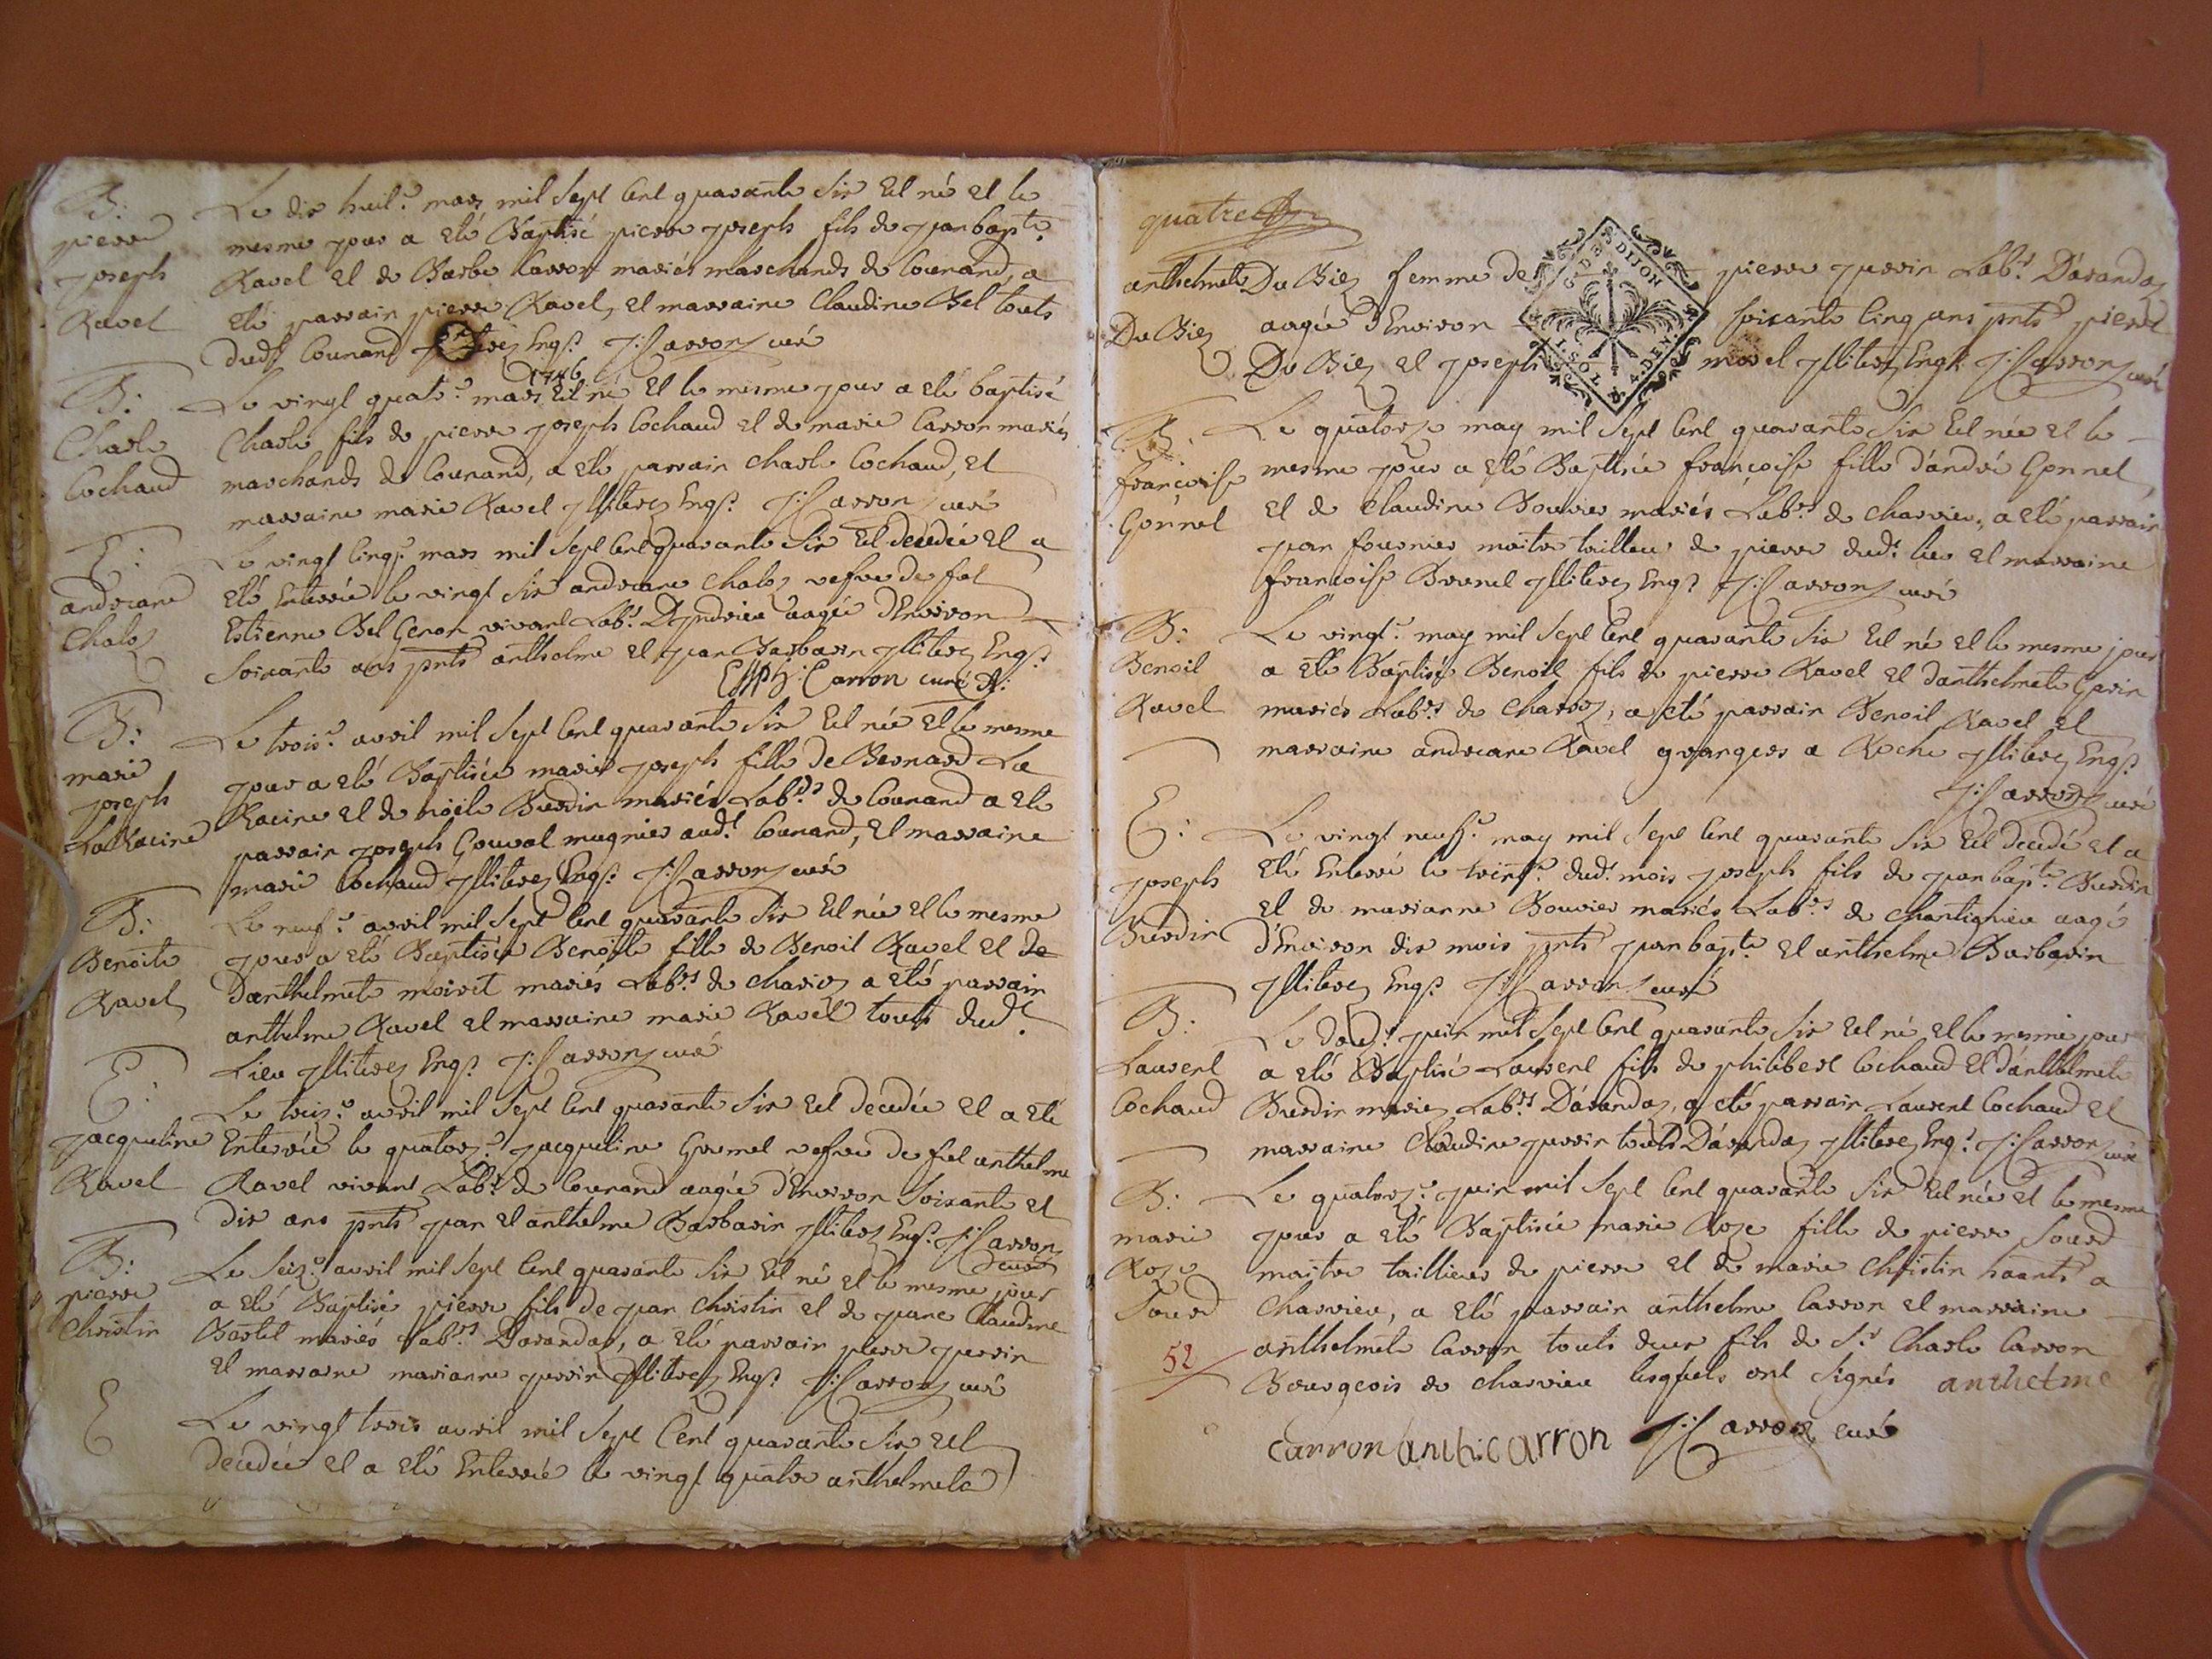 B:
pierre
joseph
Ravel
Le dix huit.e mars mil Sept Cent quarante Six Est né Et le
mesme jour a Eté Baptisé pierre joseph fils de jean bapt.e
Ravel Et de Barbe Carron mariés marchands de Counand, a
Eté parrain pierre Ravel, Et marraine Claudine Bel touts
dud.t Counand Engt. J: Carron curé
B:
Charle
Cochaud
1746
Le vingt quatr.e mars Est né Et le mesme jour a Eté baptisé
Charle fils de pierre joseph Cochaud Et de marie Carron mariés
marchands de Counand, a Eté parrain charle Cochaud, Et
marraine marie Ravel Illiterez Engt. J: Carron curé
E:
andreane
Chaley
Le vingt Cinq.e mars mil Sept Cent quarante Six Est decedée Et a
Eté Enterrée le vingt Six andreane Chaley vefve de fat
Estienne Bel Genon vivant Lab.r D'Indrieu aagée d'Environ
Soixante ans pnts anthelme Et jean Barbarin Illiterez Engt.
Carron curé
B:
marie
joseph
La Racine
Le trois.e avril mil Sept Cent quarante Six Est née Et le mesme
jour a Eté Baptisée marie joseph fille de Bernard La
Racine Et de noële Burdin mariés Lab.rs de Counand a Eté
parrain joseph Gouval mugnier aud.t Counand, Et marraine
marie Cochaud Illiterez Engt. J: Carron curé
B:
Benoite
Ravel
Le neuf.e avril mil Sept Cent quarante Six Est née Et le mesme
jour a Eté Baptisée Benoite fille de Benoit Ravel Et de
D'anthelmete moiret mariés Lab.rs de charvey a Eté parrain
anthelme Ravel Et marraine marie Ravel touts dud.t
Lieu Illiterez Engt. J: Carron curé
E:
jacqueline
Ravel
Le treiz.e avril mil Sept Cent quarante Six Est decedée Et a Eté
Enterrée le quatorz.e jacqueline Gormel vefve de fat anthelme
Ravel vivant Lab.r de Counand aagée d'Environ Soixante Et
dix ans pnts jean Et anthelme Barbarin Illiterez Engt. J: Carron
curé
B:
pierre
Christin
Le Seiz.e avril mil Sept Cent quarante Six Est né Et le mesme jour
a Eté Baptisé pierre fils de jean Christin Et de jeane Claudine
Bastel mariés Lab.rs Davanday, a Eté parrain pierre juvrin
Et marraine marianne juvrin Illiterez Engt. J: Carron curé
E
Le vingt trois avril mil Sept Cent quarante Six Est
decedée Et a Eté Enterrée le vingt quatre anthelmete
quatre
anthelmete
Du Biez
Du Biez femme de pierre juvrin Lab.r D'avanday
aagée d'Environ Soixante Cinq ans pnts pierre
Du Biez Et joseph morel Illiterez Engt. J: Carron curé
G. D. DE DIJON
1. SOL 4. DEN
B:
françoise
Gonnel
Le quatorze may mil Sept Cent quarante Six Est née Et le
mesme jour a Eté Baptisée françoise fille d'andré Gonnel
Et de Claudine Bouvier mariés Lab.rs de charvieu, a Eté parrain
jean fournier maitre tailleur de pierre dud.t lieu Et marraine
françoise Brunel Illiterez Engt. J: Carron curé
B:
Benoit
Ravel
Le vingt.e may mil Sept Cent quarante Six Est né Et le mesme jour
a Eté Baptisé Benoit fils de pierre Ravel Et d'anthelmete Gavin
mariés Lab.rs de charvey, a eté parrain Benoit Ravel Et
marraine andreane Ravel grangers a Roche Illiterez Engt.
J: Carron curé
E:
joseph
Burdin
Le vingt neuf.e may mil Sept Cent quarante Six Est decedé Et a
Eté Enterré le trent.e dud.t mois joseph fils de jean bapt.e Burdin
Et de marianne Bouvier mariés Lab.rs de chantignieu aagé
d'Environ dix mois pnts jean bapte Et anthelme Barbarin
Illiterez Engt. J: Carron curé
B:
Laurent
Cochaud
Le douz.e juin mil Sept Cent quarante Six Est né Et le mesme jour
a Eté Baptisé Laurent fils de philibert Cochaud Et d'anthelmete
Burdin mariez Lab.rs D'avanday, a eté parrain Laurent Cochaud Et
marraine Claudine juvrin touts D'avanday Illiterez Engt. J: Carron curé
B:
marie
Roze
Sourd
52
Le quatorz.e juin mil Sept Cent quarante Six Est née Et le mesme
jour a Eté Baptisée marie Roze fille de pierre Sourd
maitre tallieur de pierre Et de marie Christin haants a
Charvieu, a Eté parrain anthelme Carron Et marraine
anthelmete Carron touts deux fils de S.r Charle Carron
Bourgeois de charvieu lesquels ont Signés anthelme
carron anthcarron J: Carron, curé